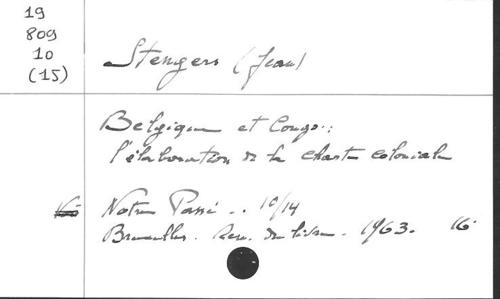 19
809
10
(15)
Stengers (Jean)
Belgique et Congo :
l'élaboration de la charte coloniale
Notre Passé .. 10/14
Bruxelles. Ren. du livre. 1963. 16°